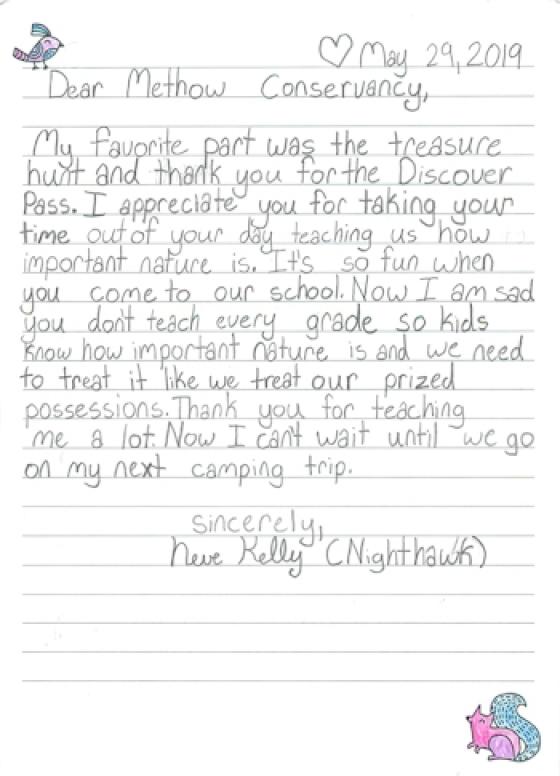 ♡ May 29, 2019
Dear Methow Conservancy,
My favorite part was the treasure
hunt and thank you for the Discover
Pass. I appreciate you for taking your
time out of your day teaching us how
important nature is. It's so fun when
you come to our school. Now I am sad
you don't teach every grade so kids
know how important nature is and we need
to treat it like we treat our prized
possessions. Thank you for teaching
me a lot. Now I can't wait until we go
on my next camping trip.
sincerely,
Neve Kelly (Nighthawk)